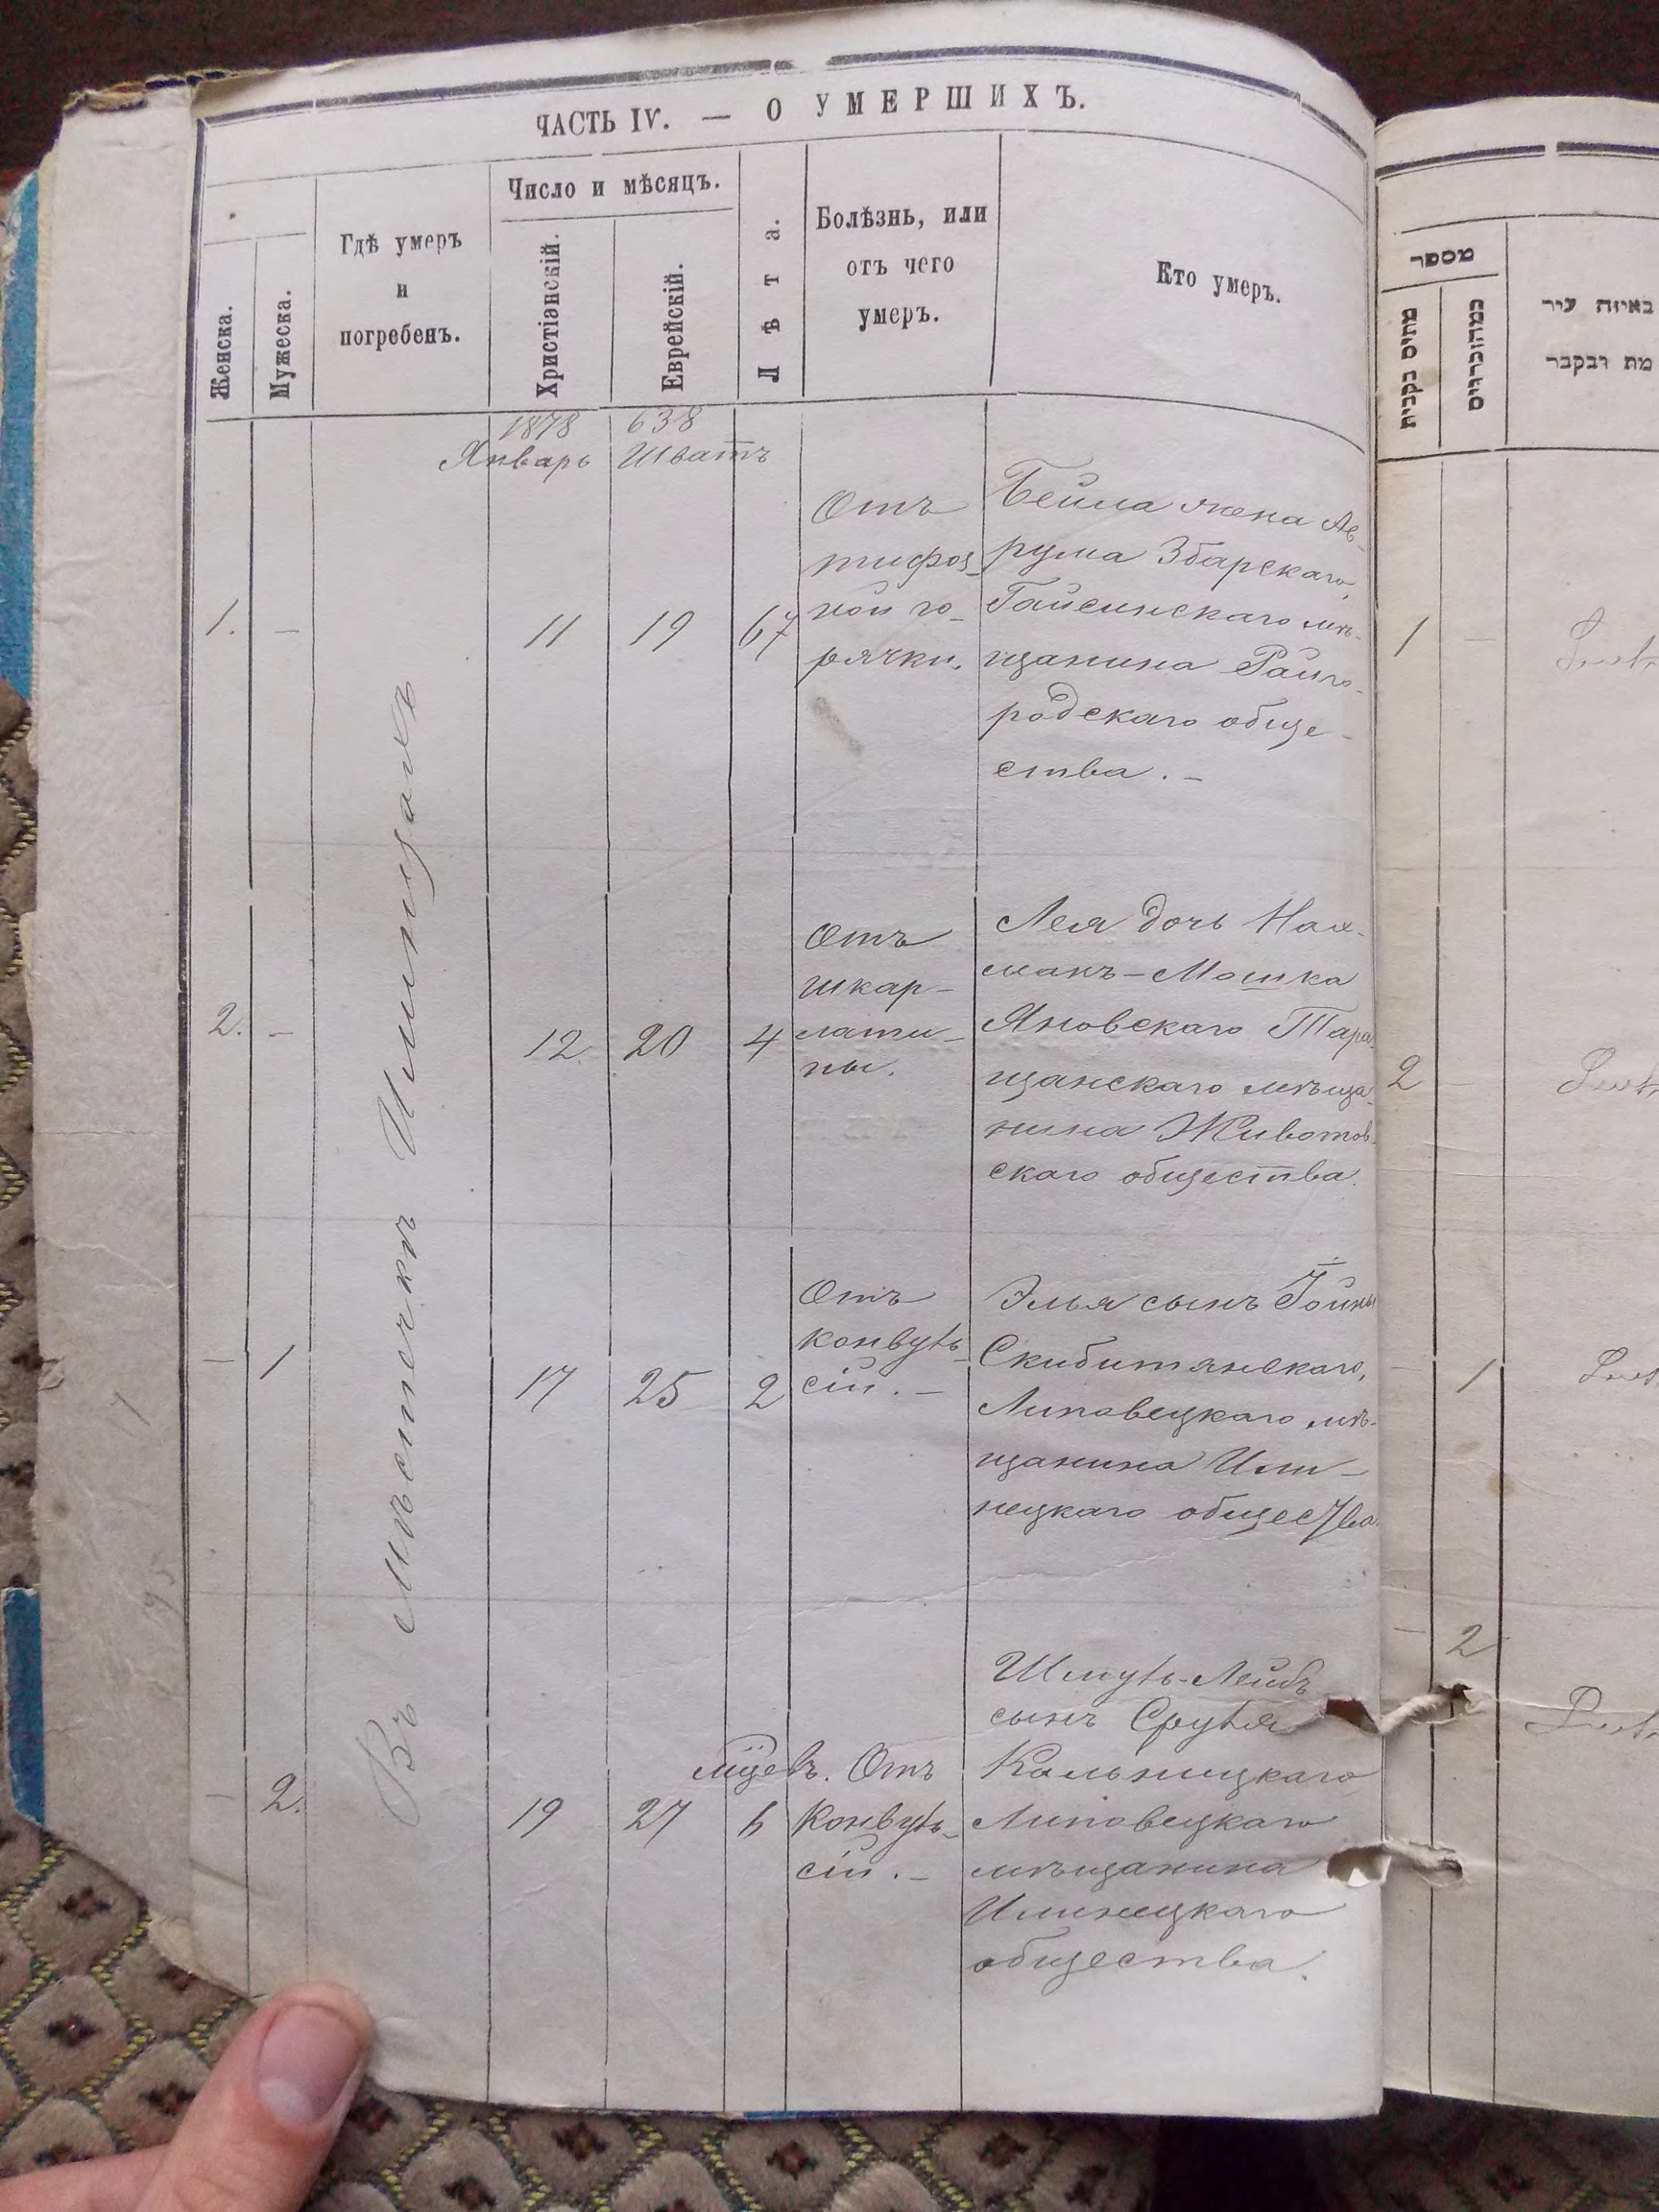 ЧАСТЬ IV. — О УМЕРШИХЪ.
Женска.
Мужеска.
Гдѣ умеръ
и
погребенъ.
Число и мѣсяцъ.
Христіанскій.
Еврейскій.
Лѣта.
Болѣзнь, или
отъ чего
умеръ.
Кто умеръ.
1878 638
Январь Шватъ
Въ мѣстечкѣ Илинцахъ
1. — 11 19 67
Отъ
тифоз-
ной го-
рячки.
Бейла жена Ав-
рума Збарскаго,
Гайсинскаго мѣ-
щанина Райго-
родскаго обще-
ства. —
2. — 12 20 4
Отъ
шкар-
лати-
ны.
Лея дочь Нах-
манъ-Мошка
Яновскаго Тара-
щанскаго мѣща-
нина Животов-
скаго общества.
— 1 17 25 2
Отъ
конвуль-
сій. —
Элья сынъ
Скибитянскаго,
Липовецкаго мѣ-
щанина Или-
нецкаго общества.
— 2. 19 27 6
Отъ
Конвуль-
сій. —
Шмуль-Лейбъ
сынъ Сруля
Кальницкаго,
Липовецкаго
мѣщанина
Илинецкаго
общества.
מספר
מתים נקבות
באיזה עיר
מת ונקבר
1 —
2
— 1
— 2